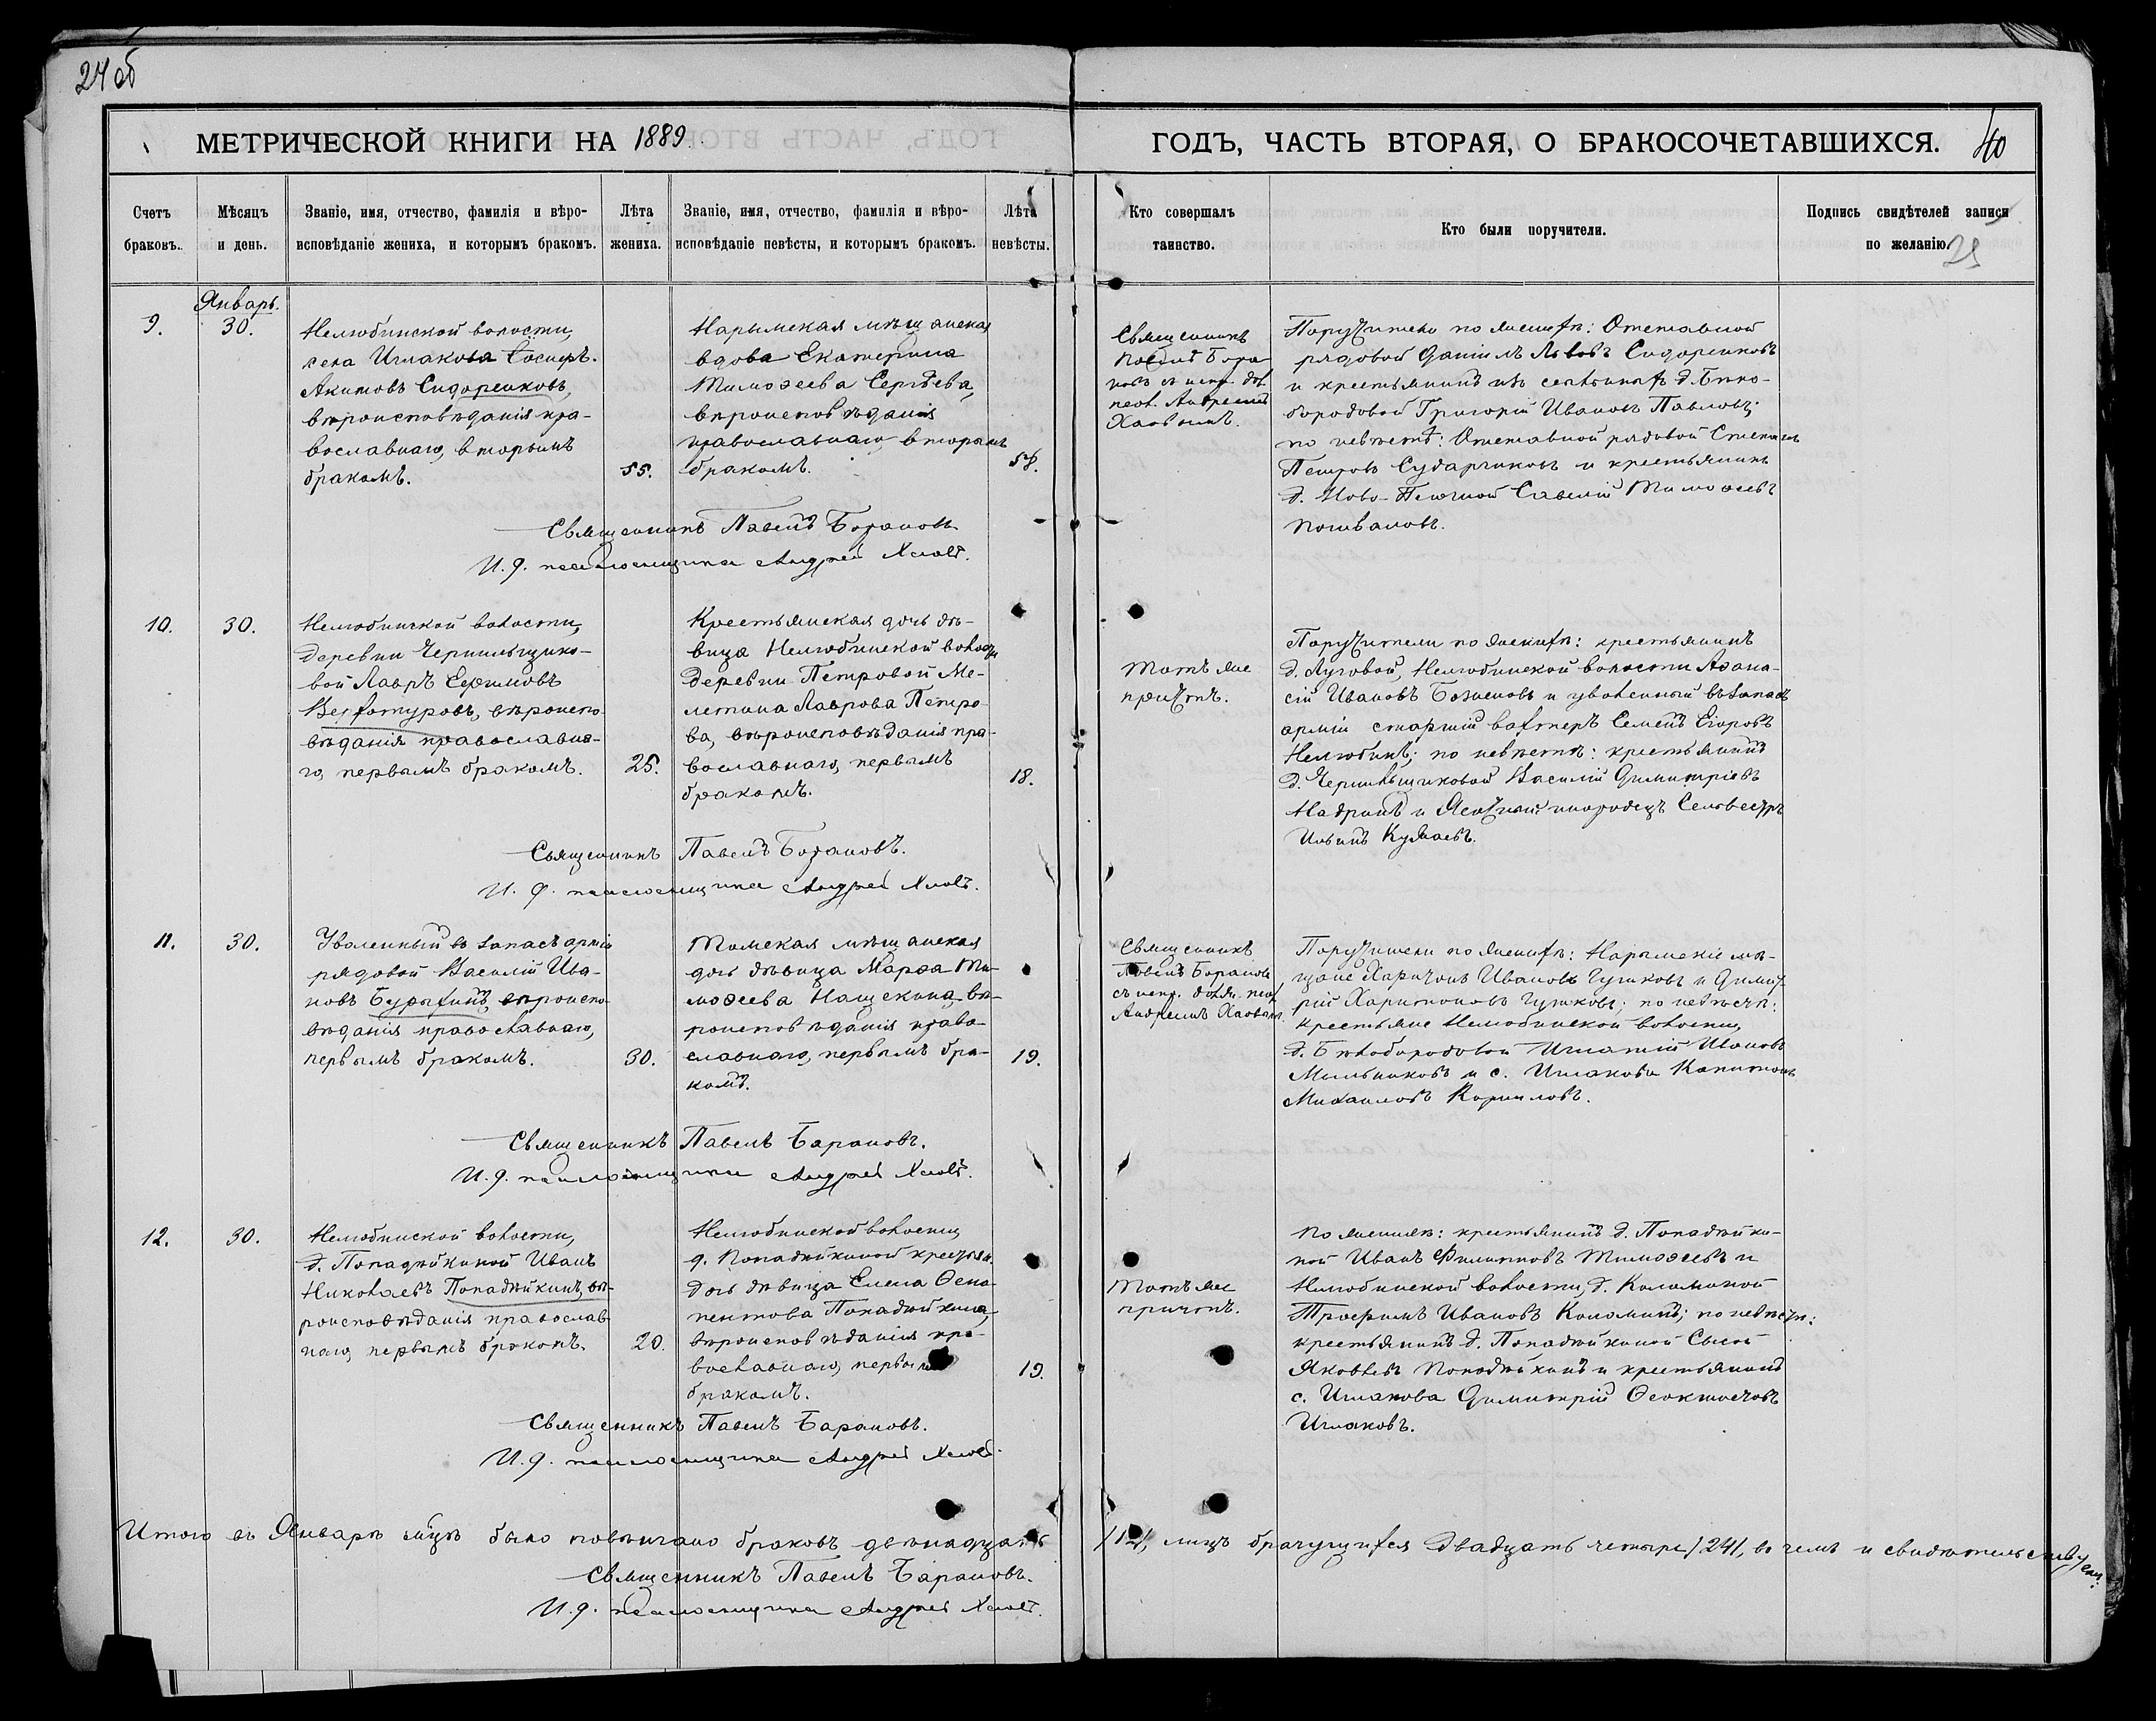 24 об
МЕТРИЧЕСКОЙ КНИГИ НА 1889
ГОДЪ, ЧАСТЬ ВТОРАЯ, О БРАКОСОЧЕТАВШИХСЯ.
40
Счетъ браковъ.
Мѣсяцъ и день.
Званіе, имя, отчество, фамилія и вѣро-
исповѣданіе жениха, и которымъ бракомъ.
Лѣта жениха.
Званіе, имя, отчество, фамилія и вѣро-
исповѣданіе невѣсты, и которымъ бракомъ.
Лѣта невѣсты.
Кто совершалъ таинство.
Кто были поручители.
Подпись свидѣтелей записи
по желанію.
25
Январь.
9.
30.
Нелюбинской волости,
села Иглакова
Акимовъ Сидоренковъ,
вѣроисповѣданія пра-
вославнаго, вторымъ
бракомъ.
55.
Нарымская мѣщанская
вдова Екатерина
Тимоѳеева Сергѣева,
вѣроисповѣданія
православнаго, вторымъ
бракомъ.
58.
Священникъ
Павелъ Бара
новъ съ испр. дол.
псал. Андреемъ
Поручители по женихѣ: Отставной
рядовой Даніилъ Львовъ Сидоренковъ
и крестьянинъ изъ д. Бѣло-
бородовой Григорій Ивановъ Павловъ;
по невѣстѣ: Отставной рядовой Степанъ
Петровъ Сударчиковъ и крестьянинъ
д. Савелій Тимоѳеевъ
Священникъ Павелъ Барановъ
И. д. псаломщика Андрей
10.
30.
Нелюбинской волости,
деревни Чернильщико-
вой Лавръ Ефимовъ
Верхотуровъ, вѣроиспо-
вѣданія православна-
го, первымъ бракомъ.
25.
Крестьянская дочь дѣ-
вица Нелюбинской волости
деревни Петровой Ме-
летина Лаврова Петро-
ва, вѣроисповѣданія пра-
вославнаго, первымъ
бракомъ.
18.
Тотъ же
причтъ.
Поручители по женихѣ: крестьянинъ
д. Луговой, Нелюбинской волости Аѳана-
сій Ивановъ Боженовъ и уволенный въ запасъ
арміи старшій вахтеръ Семенъ Егоровъ
Нелюбинъ; по невѣстѣ: крестьянинъ
д. Чернильщиковой Василій Димитріевъ
и Ясачный инородецъ Сельвестръ
Ильинъ
Священникъ Павелъ Барановъ.
И. д. псаломщика Андрей
11.
30.
Уволенный въ запасъ арміи
рядовой Василій Ива-
новъ Бурыхинъ, вѣроиспо-
вѣданія православнаго,
первымъ бракомъ.
30.
Томская мѣщанская
дочь дѣвица Марѳа Ти-
моѳеева Нащекина, вѣ-
роисповѣданія право-
славнаго, первымъ бра-
комъ.
19.
Священникъ
Павелъ Барановъ
съ испр. должн. псал.
Андреемъ
Поручители по женихѣ: Нарымскіе мѣ-
щане Харитонъ Ивановъ и Димит-
рій Харитоновъ; по невѣстѣ:
крестьяне Нелюбинской волости,
д. Бѣлобородовой Игнатій Ивановъ
Мельниковъ и с. Иглакова Капитонъ
Михаиловъ Корниловъ.
Священникъ Павелъ Барановъ.
И. д. псаломщика Андрей
12.
30.
Нелюбинской волости,
д. Попадѣйкиной Иванъ
Николаевъ Попадѣйкинъ, вѣ-
роисповѣданія православ-
наго, первымъ бракомъ.
20.
Нелюбинской волости
д. Попадѣйкиной крестьян.
дочь дѣвица Елена Ѳено-
пентова Попадѣйкина,
вѣроисповѣданія пра-
вославнаго, первымъ
бракомъ.
19.
Тотъ же
причтъ.
По женихѣ: крестьянинъ д. Попадѣйки-
ной Иванъ Филиповъ Тимоѳеевъ и
Нелюбинской волости, д. Коломиной
Трофимъ Ивановъ Коломинъ; по невѣстѣ:
крестьянинъ д. Попадѣйкиной Сысой
Яковлевъ Попадѣйкинъ и крестьянинъ
с. Иглакова Димитрій Ѳеоктистовъ
Иглаковъ.
Священникъ Павелъ Барановъ.
И. д. псаломщика Андрей
Итого въ Январѣ мцѣ было повѣнчано браковъ двѣнадцать /12/, лицъ брачущихся двадцать четыре /24/, въ чемъ и свидѣтельствуемъ:
Священникъ Павелъ Барановъ.
И. д. псаломщика Андрей